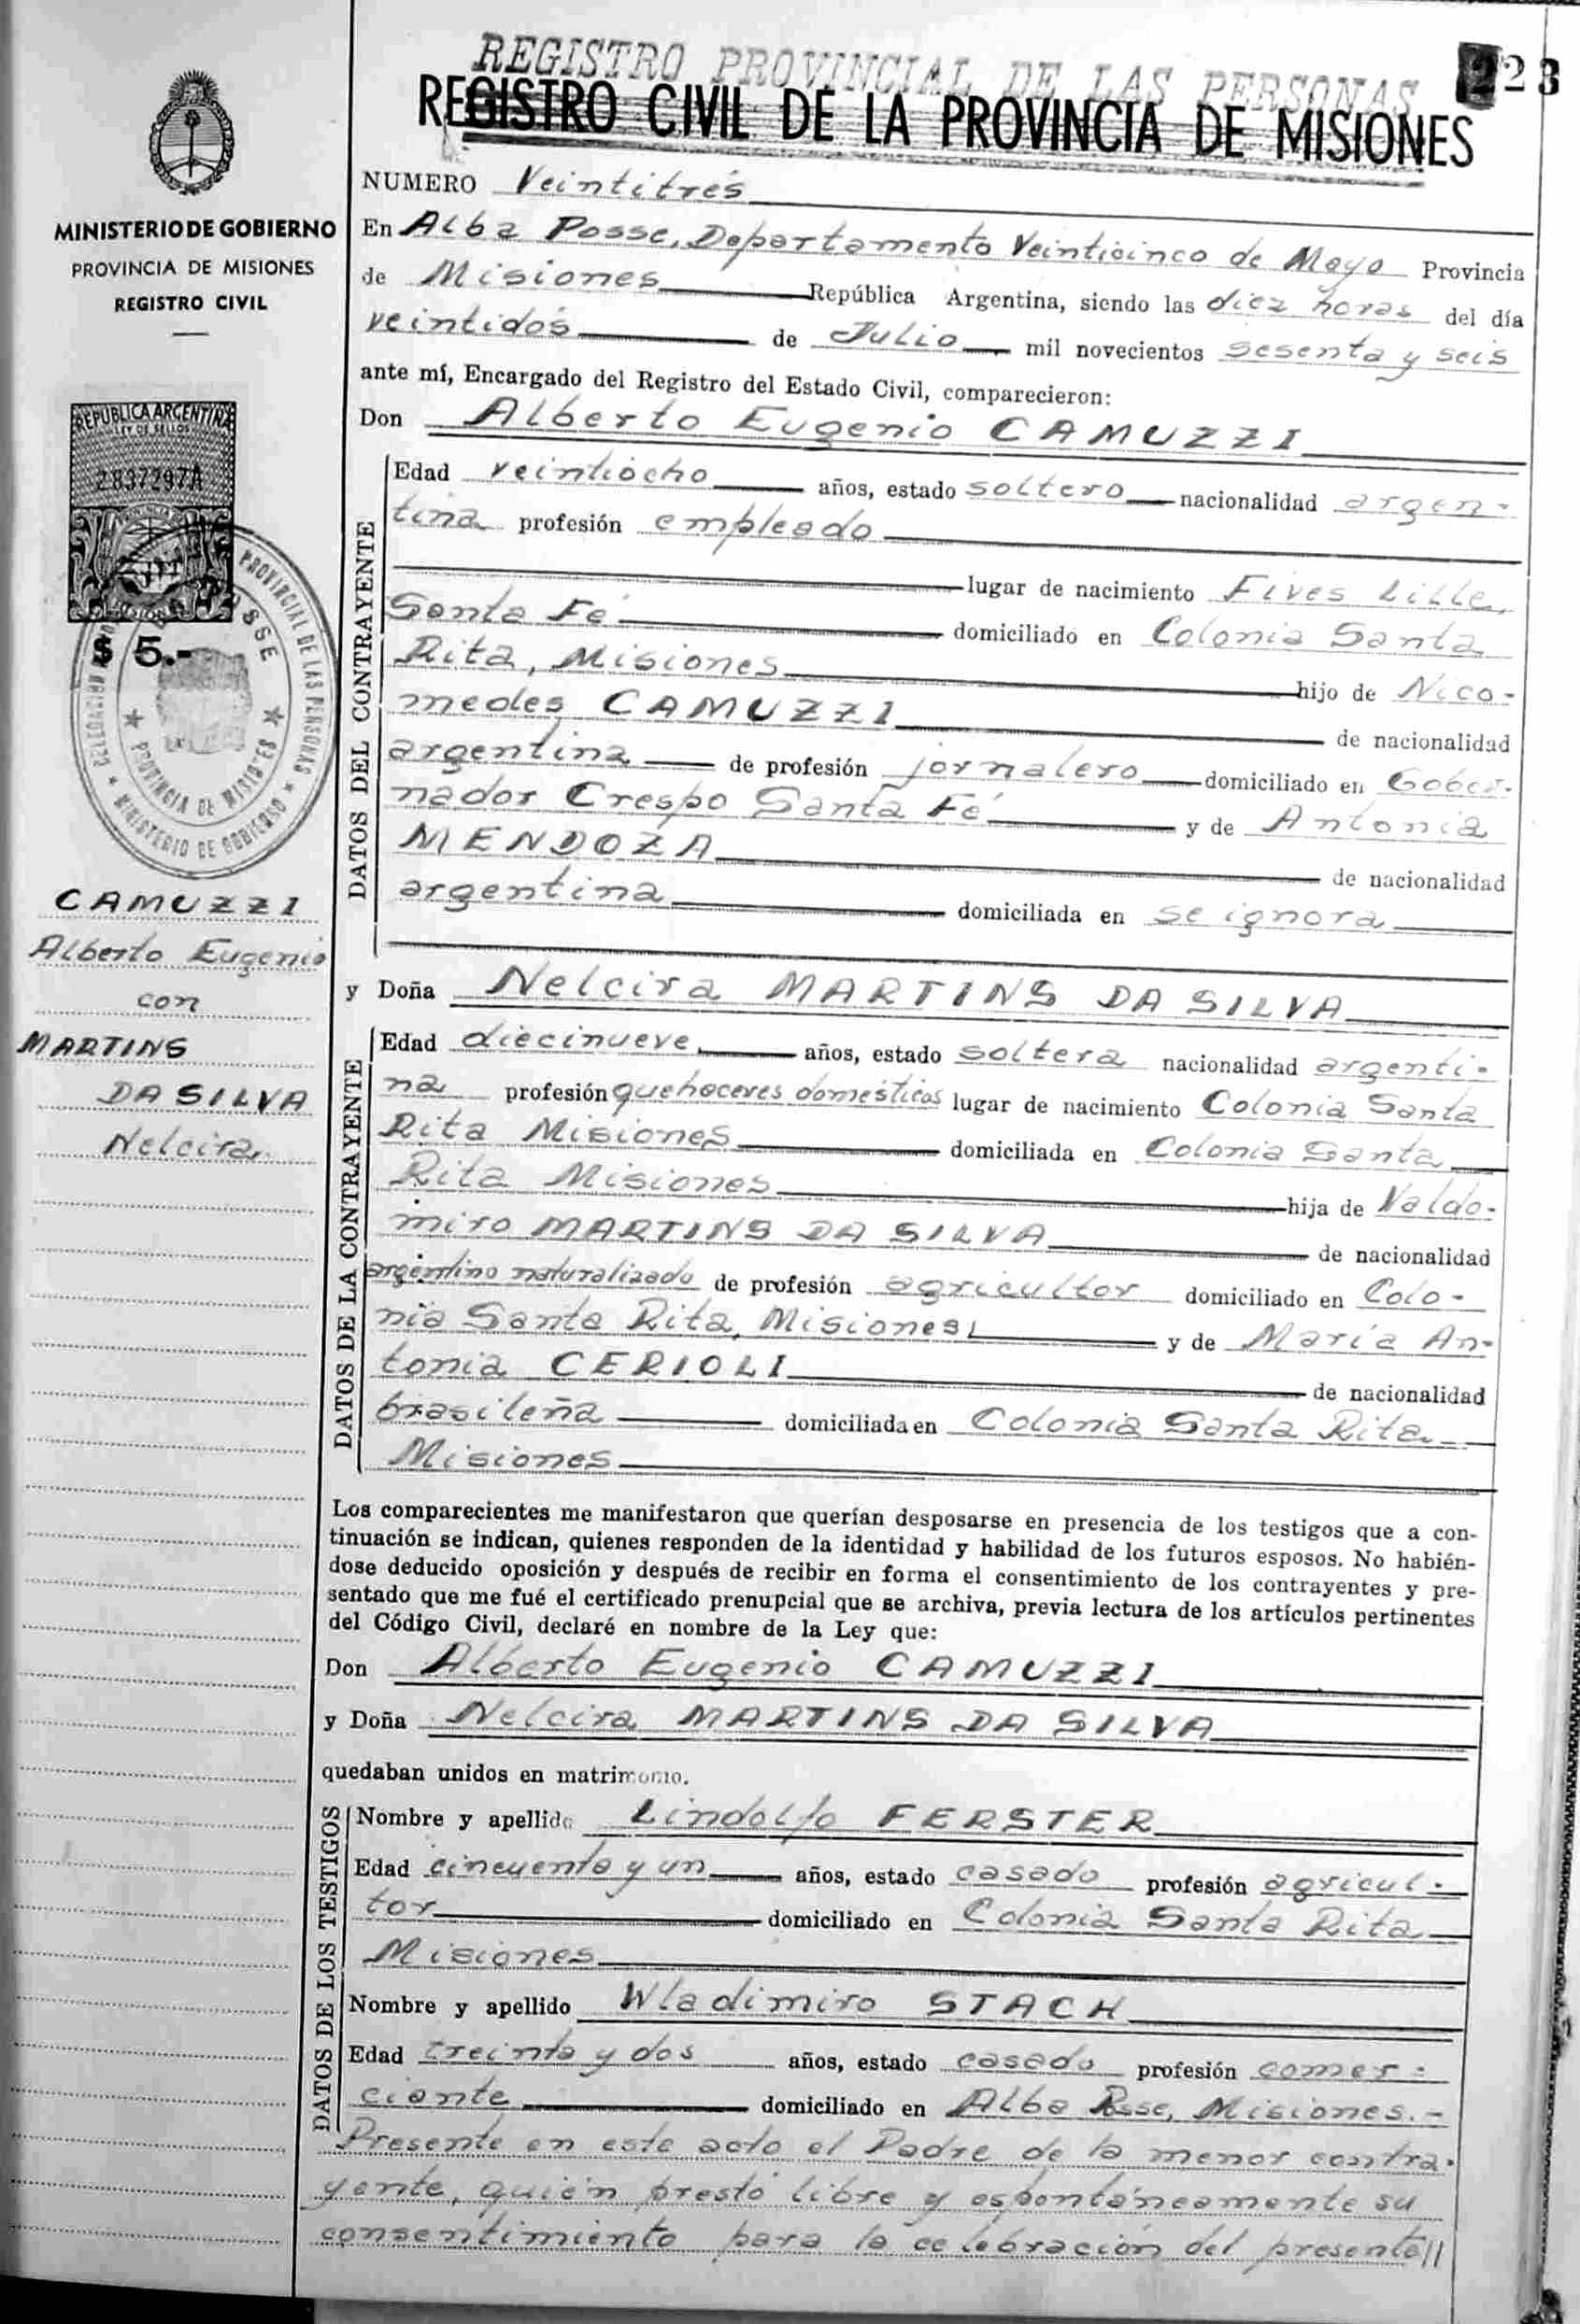 REGISTRO PROVINCIAL DE LAS PERSONAS
223
REGISTRO CIVIL DE LA PROVINCIA DE MISIONES
MINISTERIO DE GOBIERNO
PROVINCIA DE MISIONES
REGISTRO CIVIL
REPUBLICA ARGENTINA
LEY DE SELLOS
2837297A
$ 5.-
PROVINCIAL DE LAS PERSONAS
PROVINCIA DE MISIONES
MINISTERIO DE GOBIERNO
CAMUZZI
Alberto Eugenio
con
MARTINS
DA SILVA
Nelcira
NUMERO Veintitrés
En Alba Posse, Departamento Veinticinco de Mayo Provincia
de Misiones República Argentina, siendo las diez horas del día
veintidós de Julio mil novecientos sesenta y seis
ante mí, Encargado del Registro del Estado Civil, comparecieron:
Don Alberto Eugenio CAMUZZI
DATOS DEL CONTRAYENTE
Edad veintiocho años, estado soltero nacionalidad argen-
tina profesión empleado
lugar de nacimiento Fives Lille,
Santa Fé domiciliado en Colonia Santa
Rita, Misiones hijo de Nico-
medes CAMUZZI de nacionalidad
argentina de profesión jornalero domiciliado en Gober-
nador Crespo Santa Fé y de Antonia
MENDOZA de nacionalidad
argentina domiciliada en se ignora
y Doña Nelcira MARTINS DA SILVA
DATOS DE LA CONTRAYENTE
Edad diecinueve años, estado soltera nacionalidad argenti-
na profesión quehaceres domésticos lugar de nacimiento Colonia Santa
Rita Misiones domiciliada en Colonia Santa
Rita Misiones hija de Valdo-
miro MARTINS DA SILVA de nacionalidad
argentino naturalizado de profesión agricultor domiciliado en Colo-
nia Santa Rita, Misiones y de María An-
tonia CERIOLI de nacionalidad
brasileña domiciliada en Colonia Santa Rita
Misiones
Los comparecientes me manifestaron que querían desposarse en presencia de los testigos que a con-
tinuación se indican, quienes responden de la identidad y habilidad de los futuros esposos. No habién-
dose deducido oposición y después de recibir en forma el consentimiento de los contrayentes y pre-
sentado que me fué el certificado prenupcial que se archiva, previa lectura de los artículos pertinentes
del Código Civil, declaré en nombre de la Ley que:
Don Alberto Eugenio CAMUZZI
y Doña Nelcira MARTINS DA SILVA
quedaban unidos en matrimonio.
DATOS DE LOS TESTIGOS
Nombre y apellido Lindolfo FERSTER
Edad cincuenta y un años, estado casado profesión agricul-
tor domiciliado en Colonia Santa Rita
Misiones
Nombre y apellido Wladimiro STACH
Edad treinta y dos años, estado casado profesión comer-
ciante domiciliado en Alba Posse, Misiones.-
Presente en este acto el Padre de la menor contra-
yente, quién prestó libre y espontáneamente su
consentimiento para la celebración del presente//